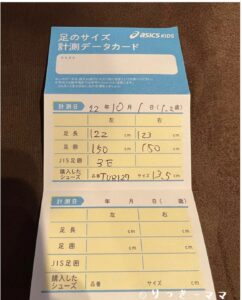 asics KIDS
足のサイズ
計測データカード
計測日 22年10月1日(1.2歳)
左 右
足長 122 cm 123 cm
足囲 150 cm 150 cm
JIS足囲 3E
購入したシューズ 品番 TUB127 サイズ 13.5 cm
計測日 年 月 日( 歳)
左 右
足長 cm cm
足囲 cm cm
JIS足囲
購入したシューズ 品番 サイズ cm